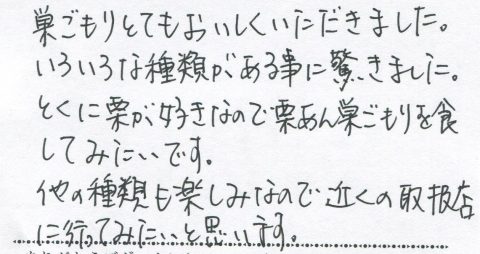 巣ごもりとてもおいしくいただきました。
いろいろな種類がある事に驚きました。
とくに栗が好きなので栗あん巣ごもりを食
してみたいです。
他の種類も楽しみなので近くの取扱店
に行ってみたいと思います。